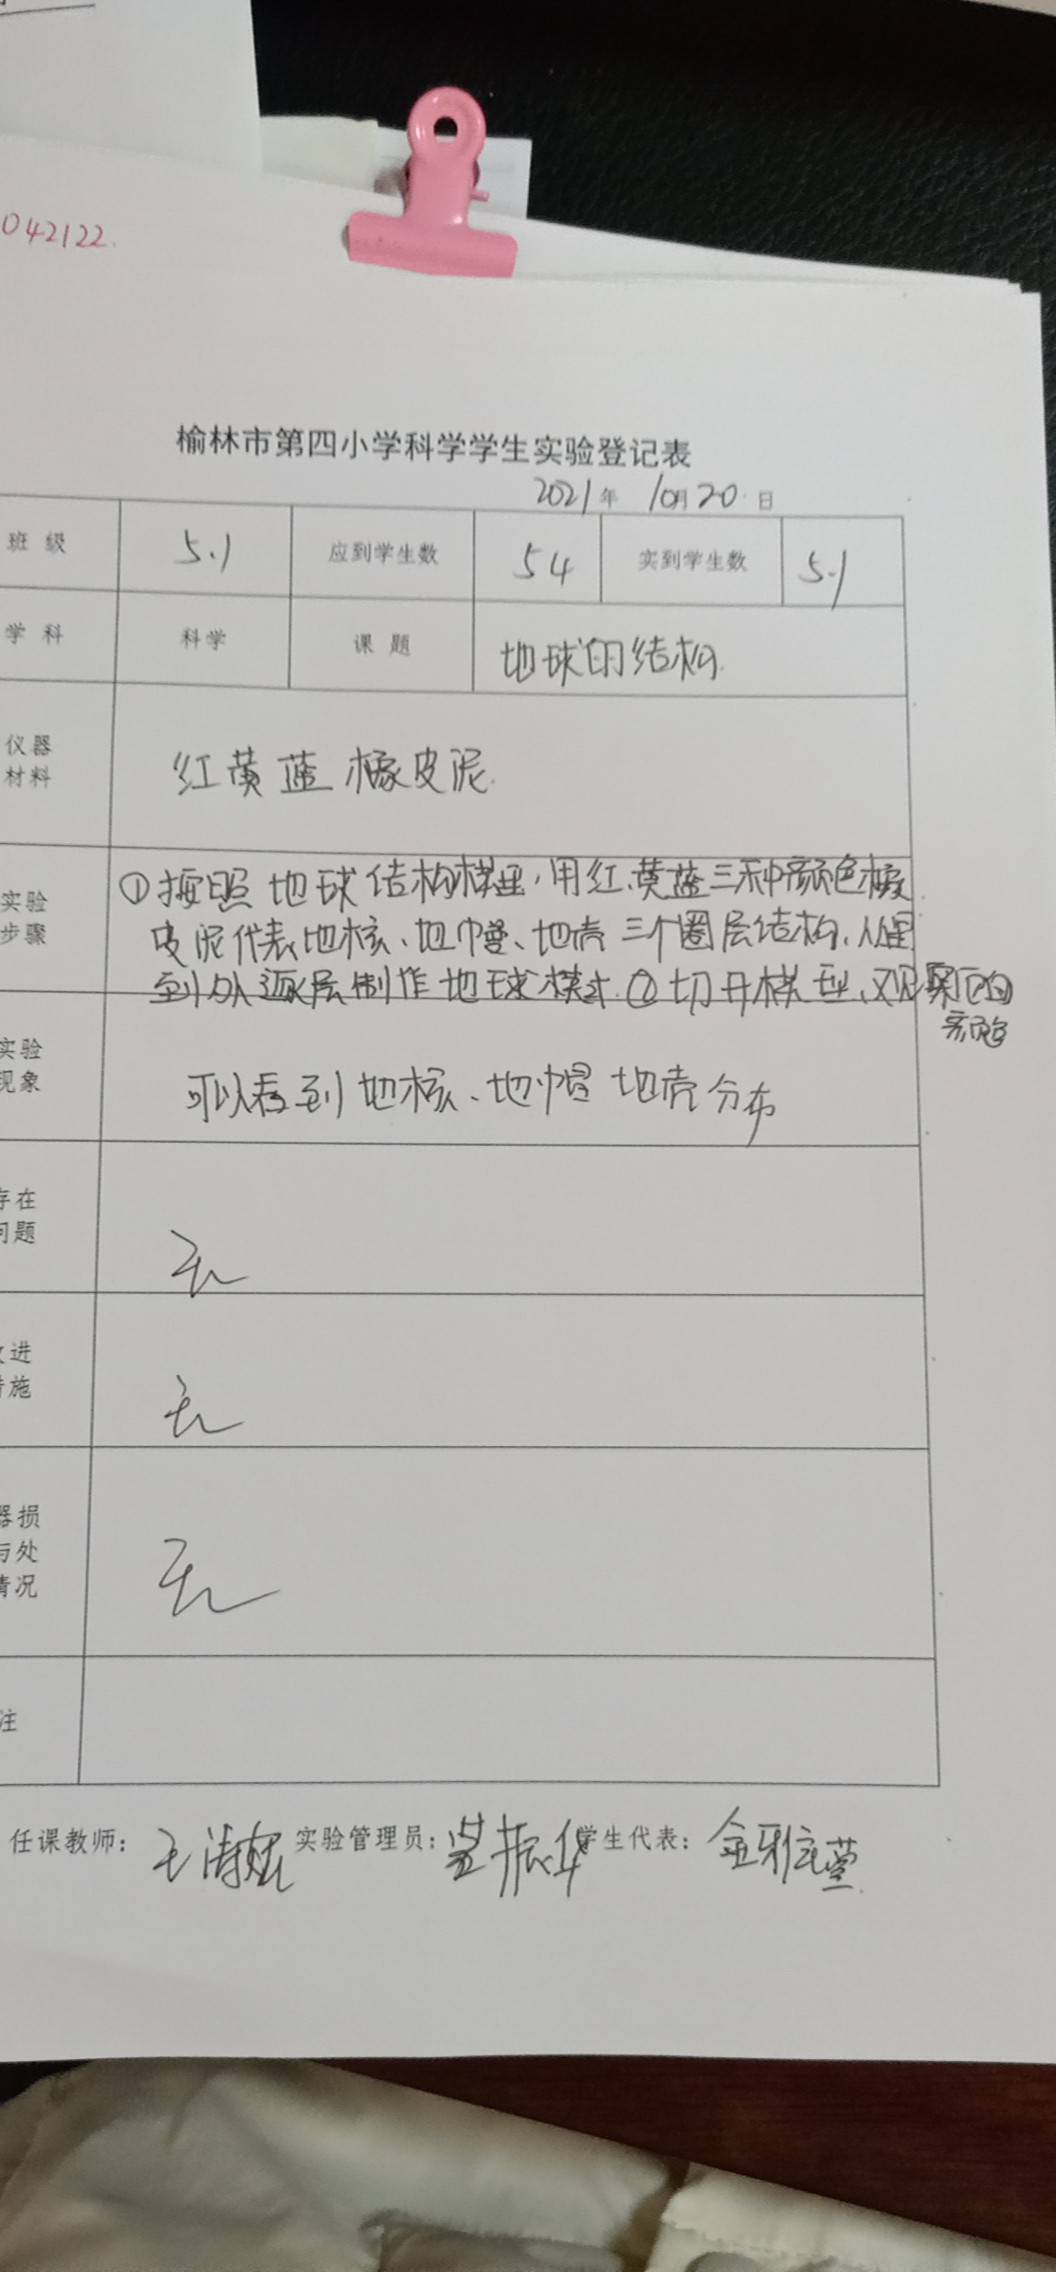 042122.
榆林市第四小学科学学生实验登记表
2021年 10月20日
班 级 5.1 应到学生数 54 实到学生数 5.1
学 科 科学 课 题 地球的结构.
仪器
材料
红 黄 蓝 橡皮泥.
①按照 地球结构模型,用红、黄蓝三种颜色橡
皮泥代表地核、地幔、地壳 三个圈层结构,从里
到外逐层制作地球模型.②切开模型、观察
实验
步骤
可以看到 地核、地幔 地壳分布
实验
现象
存在
问题
无
改进
措施
无
器损
与处
情况
无
注
任课教师: 实验管理员: 学生代表: